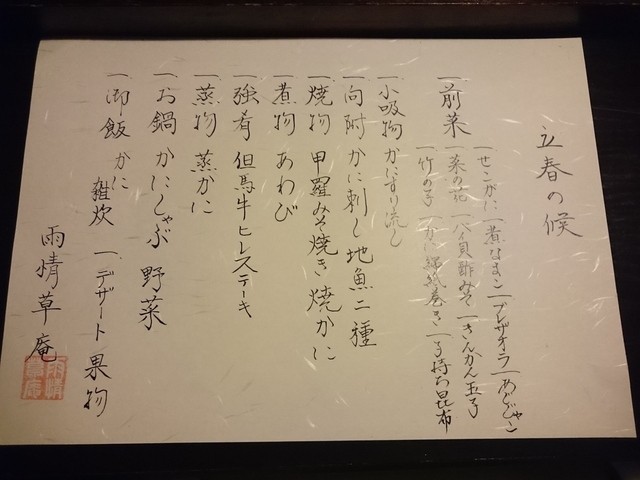 立春の候
一 前菜
一 せこがに 一 煮なまこ 一 ブレザオラ 一 めひじゃこ
一 菜の花 一 バイ貝酢みそ 一 きんかん玉子
一 竹の子 一 かに錦紙巻き 一 子持ち昆布
一 小吸物 かにすり流し
一 向附 かに刺し 地魚二種
一 焼物 甲羅みそ焼き 焼かに
一 煮物 あわび
一 強肴 但馬牛ヒレステーキ
一 蒸物 蒸かに
一 お鍋 かにしゃぶ 野菜
一 御飯 かに雑炊 一 デザート 果物
雨情草庵